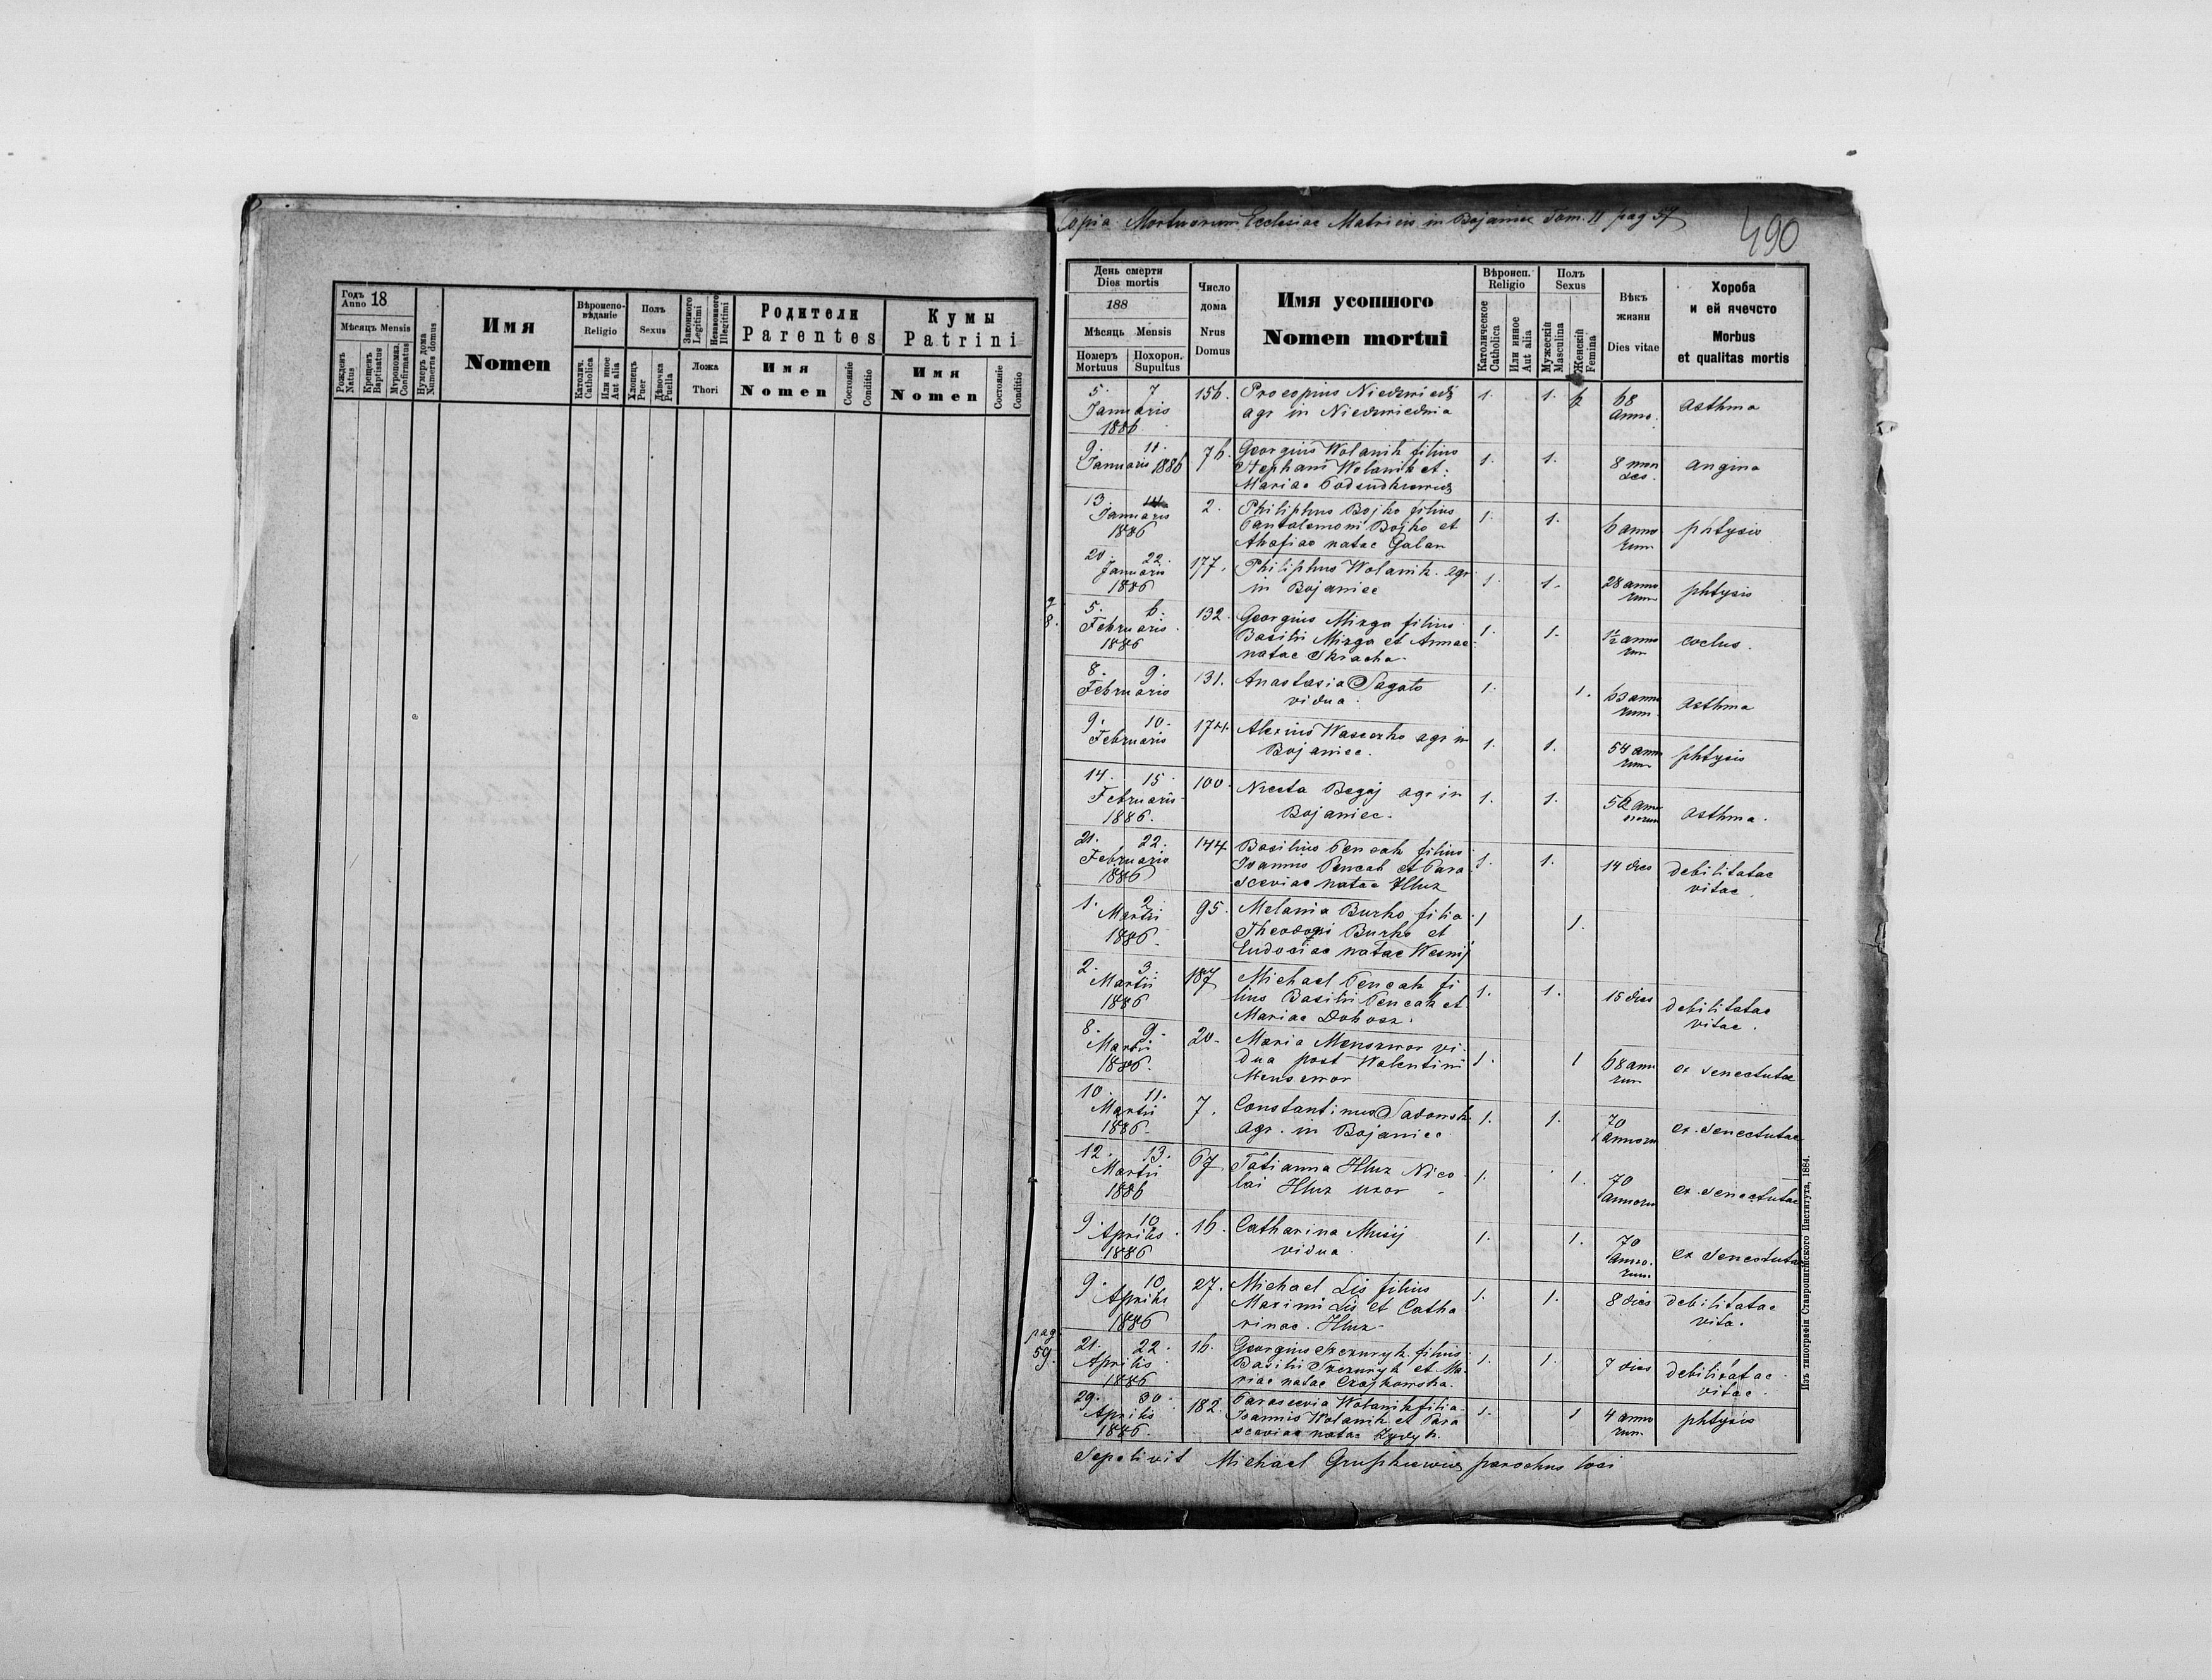 Годъ Anno 18
Мѣсяцъ Mensis
Рожденъ Natus
Крещенъ Baptisatus
Муропомаз. Confirmatus
Нумеръ дома Numerus domus
Имя
Nomen
Вѣроисповѣданіе
Religio
Католич. Catholica
Или иное Aut alia
Полъ
Sexus
Хлопецъ Puer
Дѣвочка Puella
Законного Legitimi
Незаконного Illegitimi
Ложа
Thori
Родители
Parentes
Имя
Nomen
Состояніе Conditio
Кумы
Patrini
Имя
Nomen
Состояніе Conditio
Copia Mortuorum Ecclesiae Matricis in Bojaniec Tom. II pag 57
490
День смерти
Dies mortis
188
Мѣсяць Mensis
Померъ Mortuus
Похорон. Supultus
Число дома
Nrus Domus
Имя усопшого
Nomen mortui
Вѣроисп.
Religio
Католическое Catholica
Или иное Aut alia
Полъ
Sexus
Мужескій Masculina
Женскій Femina
Вѣкъ жизни
Dies vitae
Хороба
и ей ячечсто
Morbus
et qualitas mortis
5. 7 Januaris 1886 156. Procopius Niedzwiedź 1. 1. 68 anno. asthma
agr in Niedzwiednia
9 11. Januaris 1886 76. Georgius Wolanik filius 1. 1. 8 menses. angina
Stephani Wolanik et.
Mariae Podsudkiewicz
13. Januaris 1886 2. Philiphus Bojko filius 1. 1. 6 annorum phtysis
Pantalemoni Bojko et
Ahafiae natae Galan
20. 22. Januaris 1886 177. Philiphus Wolanik. agr 1. 1. 28 annorum phtysis
in Bojaniec
5. 6. Februaris. 1886 132. Georgius Mizga filius 1. 1. 1/2 annorum coctus.
Basilii Mizga et Annae
natae Skracha.
8. 9. Februaris 131. Anastasia Sagato 1. 1. 63 annorum. asthma
vidua.
9. 10. Februaris 174. Alexius Wascezko agr in 1. 1. 54 annorum phtysis
Bojaniec.
14. 15. Februaris 1886. 100. Niceta Begaj agr in 1. 1. asthma.
Bojaniec.
21. 22. Februaris 1886 144. Basilius Pencak filius 1. 1. 14 dies debilitatae
Ioannis Pencak et Para vitae.
sceviae natae Hluz
1. 2 Martii 1886. 95. Melania Burko filia 1 1.
Theodozi Burko et
Eudociae natae Wesnij
2. 3. Martii 1886 187 Michael Pencak fi 1. 1. 15 dies debilitatae
lius Basilii Pencak et vitae.
Mariae Dobosz.
8. 9. Martii 1886. 20. Maria Menszwor vi 1. 1 68 annorum ex senectutae
dua post Walentini
Menszwor
10. 11. Martii 1886. 7. Constantinus Sadowsk 1. 1. 70 annoru ex. senectutae
agr. in Bojaniec
12. 13. Martii 1886 67 Tatianna Hluz Nico 1. 1. 70 annoru ex. senectutae
lai Hluz uxor
9. 10 Aprilis. 1886 16. Catharina Musij 1. 1. 70 annorum ex senectutae
vidua.
9. 10 Aprilis 1886 27. Michael Lis filius 1. 1. 8 dies debilitatae
Maximi Lis et Catha vita.
rinae. Hluz
pag 59.
21. 22. Aprilis 1886 16. Georgius Szczuryk filius 1. 1. 7 dies debilitatae
Basilii Szczuryk et Ma vitae.
riae natae Czajkowska.
29. 30 Aprilis 1886. 182. Parascevia Wolanik filia 1. 1 4 annorum. phtysis
Ioannis Wolanik et Para
sceviae natae Zydyk.
Sepelivit Michael Gruszkiewicz parochus loci
Изъ типографіи Ставропигійского Института, 1884.